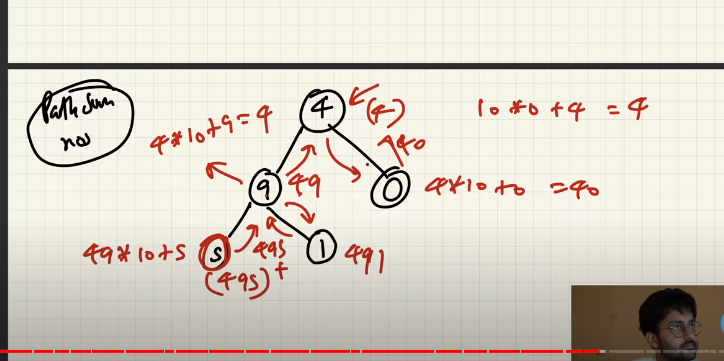 Path Sum
nos
4
(4)
10*0+4 = 4
4*10+9=4
40
9
49
0
4*10+0 =40
49*10+5
5
495
1
491
(495)+